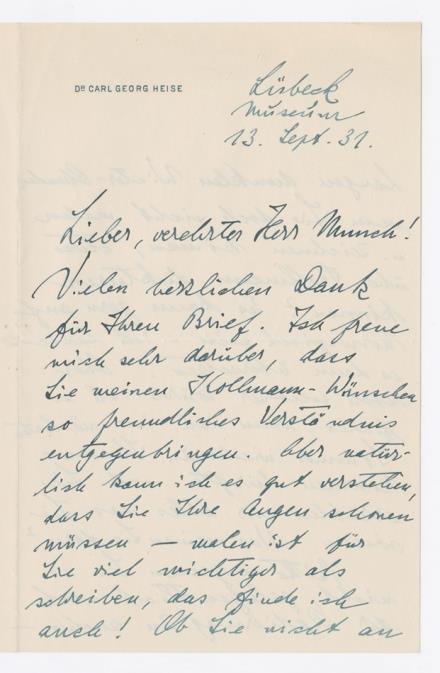 DR CARL GEORG HEISE
Lübeck
Museum
13. Sept. 31.
Lieber, verehrter Herr Munch!
Vielen herzlichen Dank
für Ihren Brief. Ich freue
mich sehr darüber, dass
Sie meinen Kollmann-Wünschen
so freundliches Verständnis
entgegenbringen. Aber natür-
lich kann ich es gut verstehen,
dass Sie Ihre Augen schonen
müssen — malen ist für
Sie viel wichtiger als
schreiben, das finde ich
auch! Ob Sie nicht an